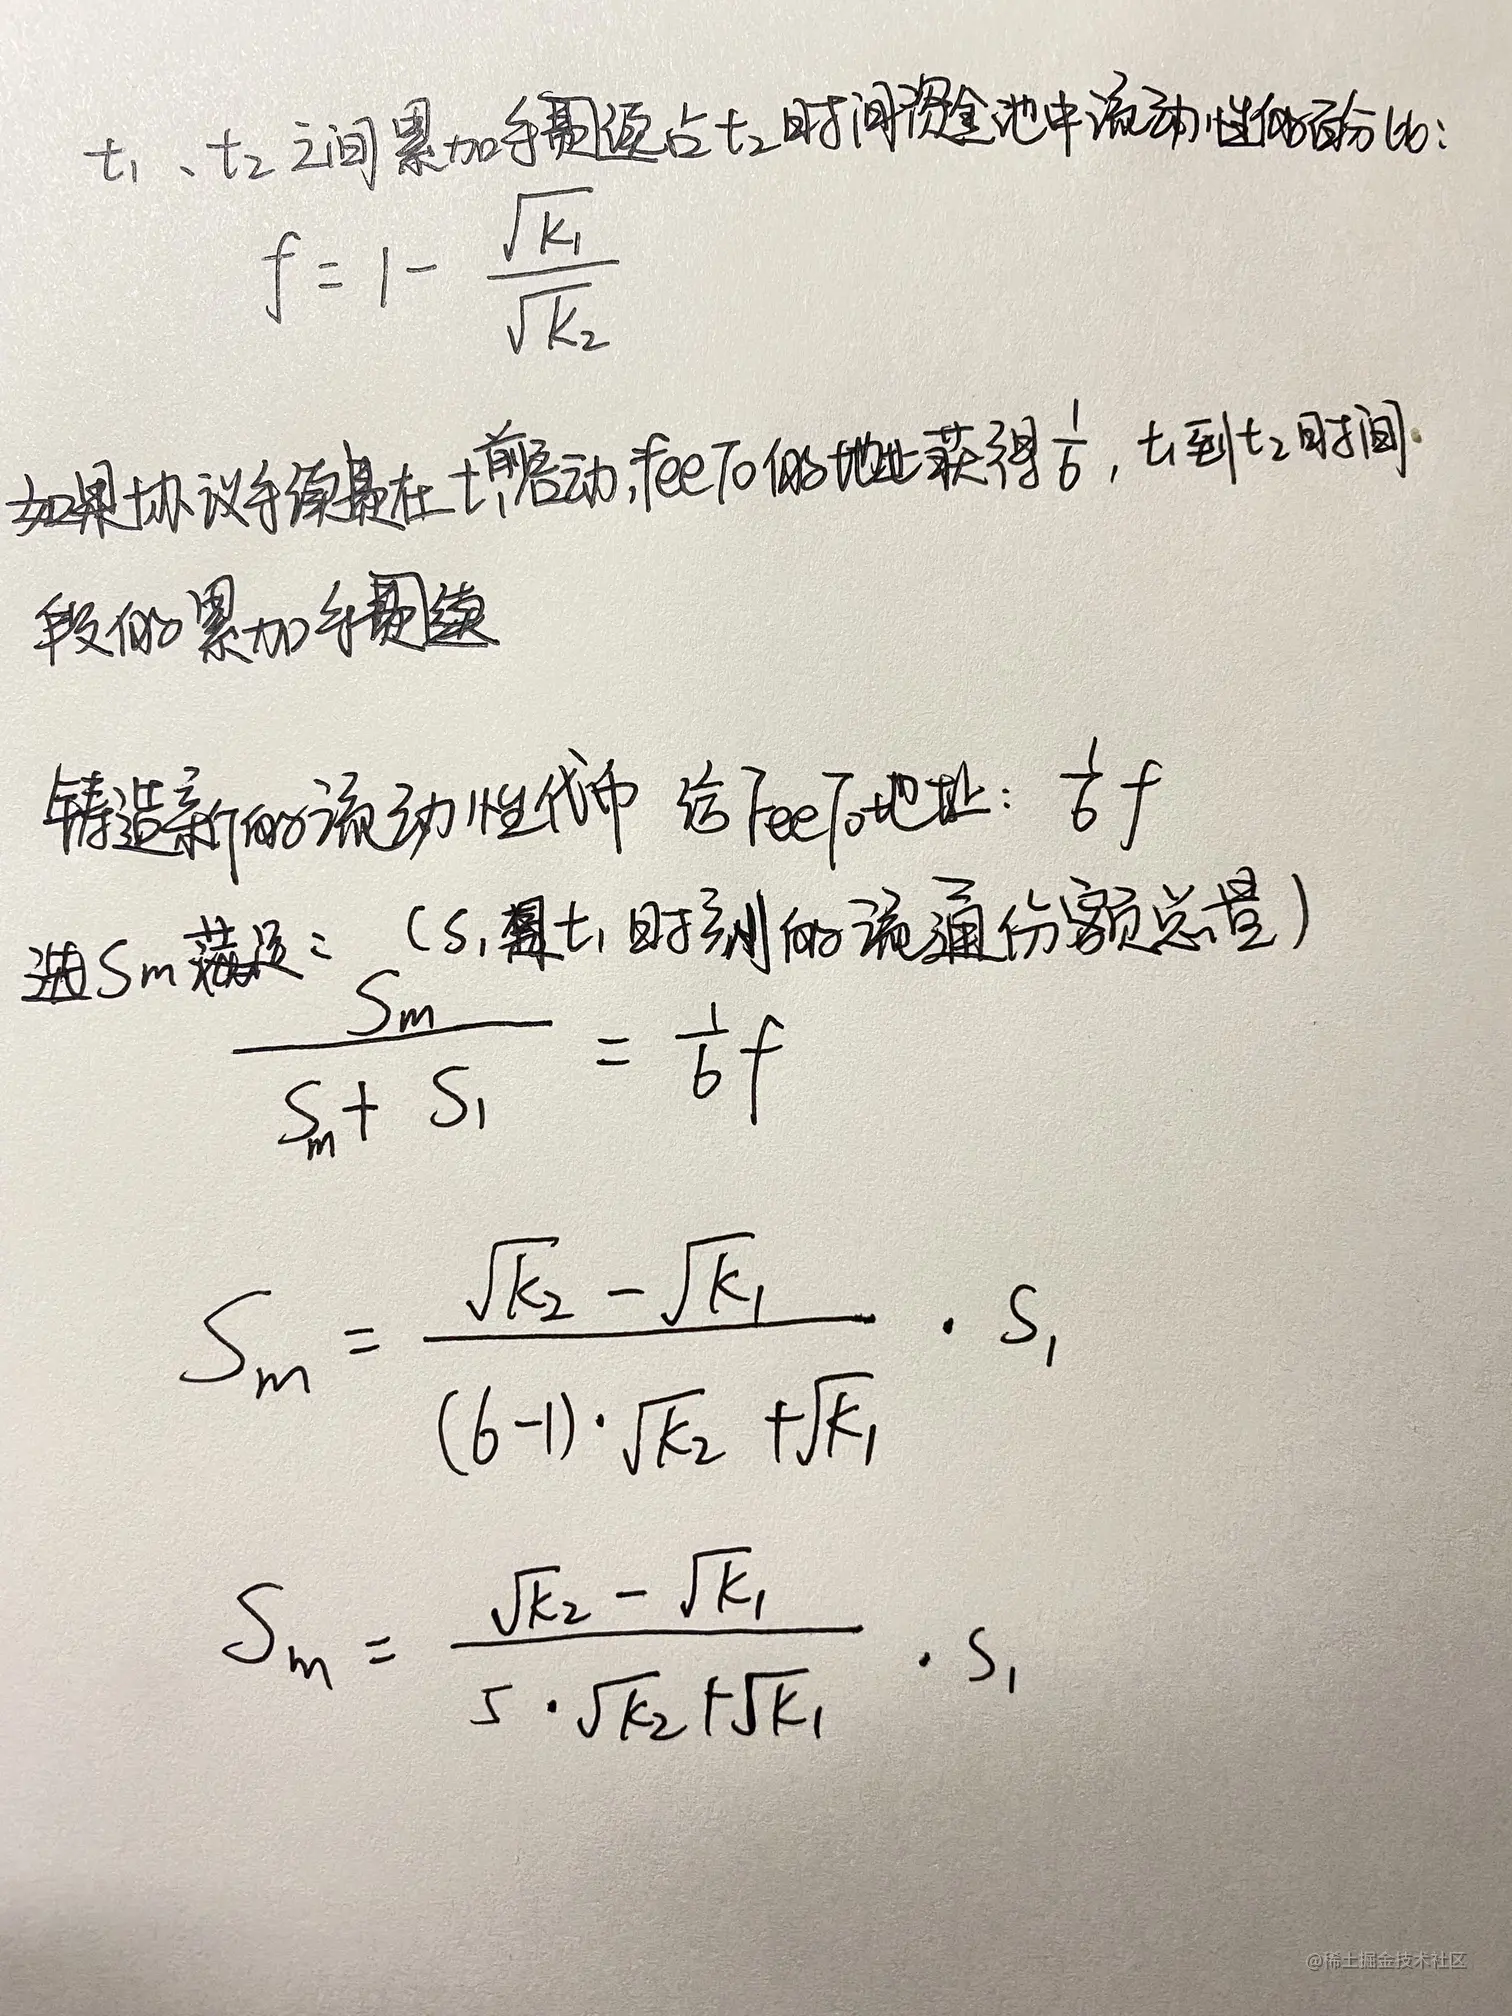 t₁、t₂之间累加手续费占t₂时间资金池中流动性的百分比:
f = 1 - √k₁ / √k₂
如果协议手续费在t₁前启动,feeTo的地址获得1/6, t₁到t₂时间
段的累加手费续
铸造新的流动性代币 给FeeTo地址: 1/6 f
选Sm满足: (S₁是t₁时刻的流通份额总量)
Sm / (Sm + S₁) = 1/6 f
Sm = (√k₂ - √k₁) / ((6-1)·√k₂ + √k₁) · S₁
Sm = (√k₂ - √k₁) / (5·√k₂ + √k₁) · S₁
@稀土掘金技术社区